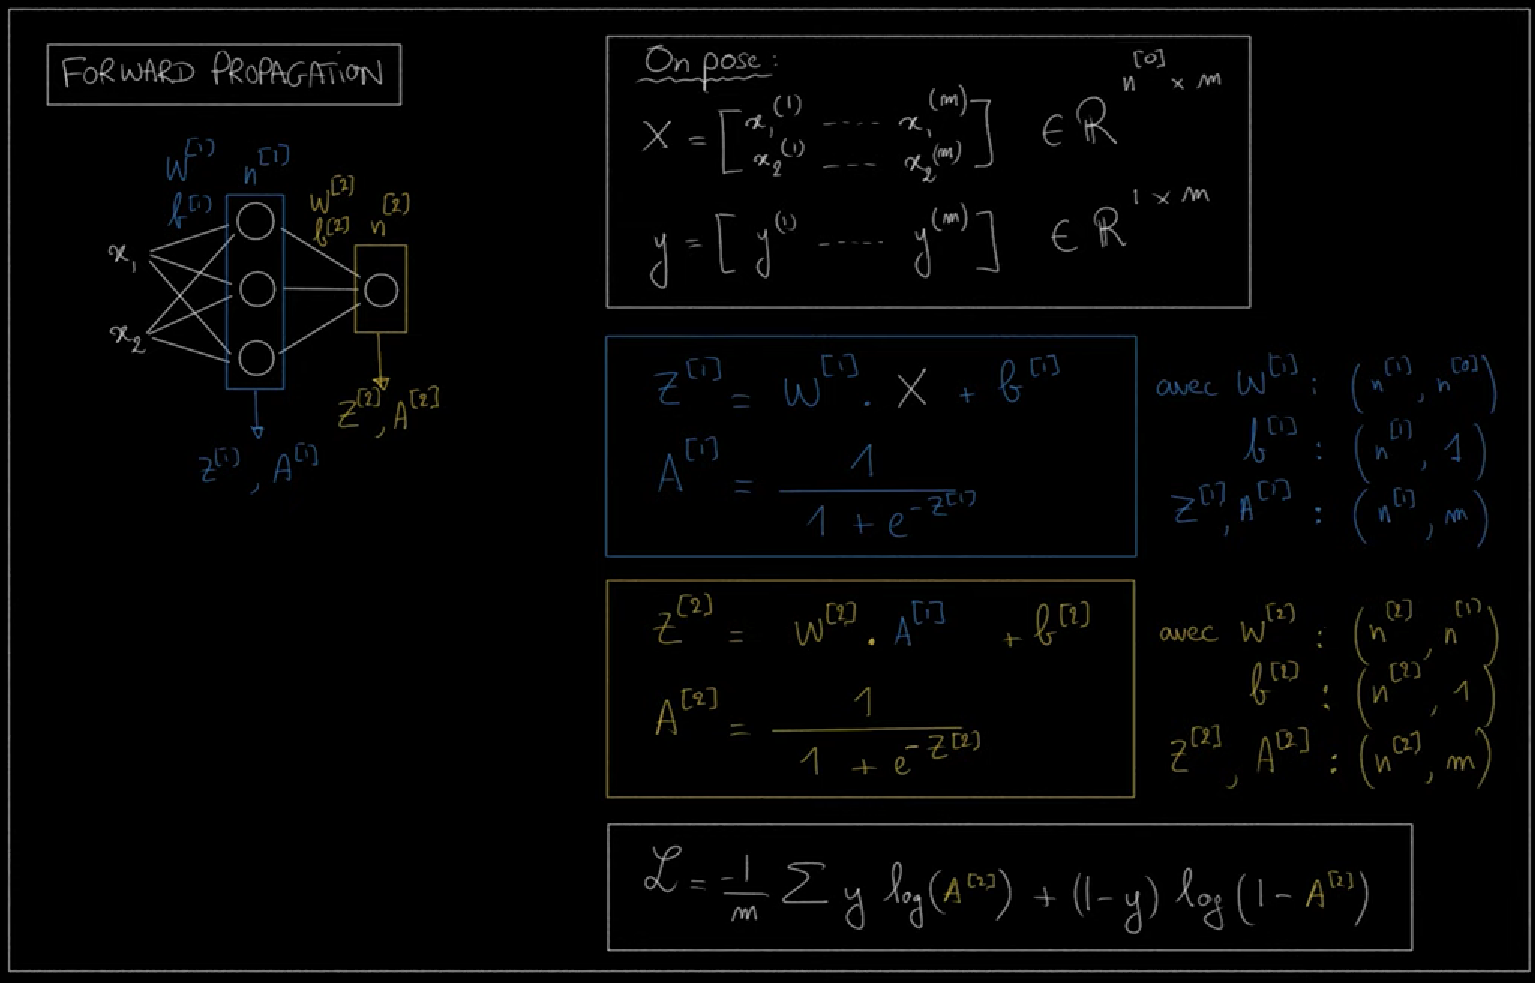 FORWARD PROPAGATION
W^[1] n^[1]
b^[1]
W^[2]
b^[2] n^[2]
x_1
x_2
Z^[1], A^[1]
Z^[2], A^[2]
On pose :
X = [ x_1^(1) ---- x_1^(m) ] ∈ ℝ^(n^[0] × m)
x_2^(1) ---- x_2^(m)
y = [ y^(1) ---- y^(m) ] ∈ ℝ^(1 × m)
Z^[1] = W^[1] . X + b^[1]
A^[1] = 1 / (1 + e^(-Z^[1]))
avec W^[1] : (n^[1], n^[0])
b^[1] : (n^[1], 1)
Z^[1], A^[1] : (n^[1], m)
Z^[2] = W^[2] . A^[1] + b^[2]
A^[2] = 1 / (1 + e^(-Z^[2]))
avec W^[2] : (n^[2], n^[1])
b^[2] : (n^[2], 1)
Z^[2], A^[2] : (n^[2], m)
ℒ = -1/m Σ y log(A^[2]) + (1-y) log(1-A^[2])